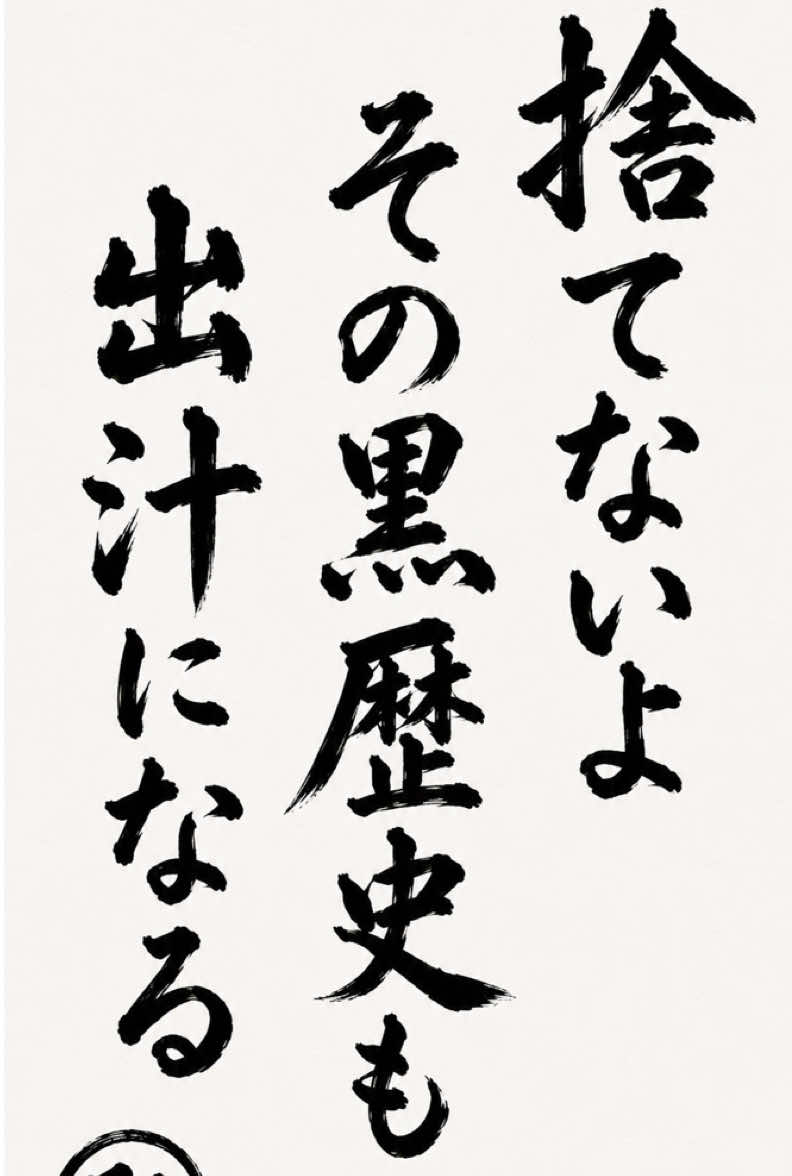 捨てないよ
その黒歴史も
出汁になる